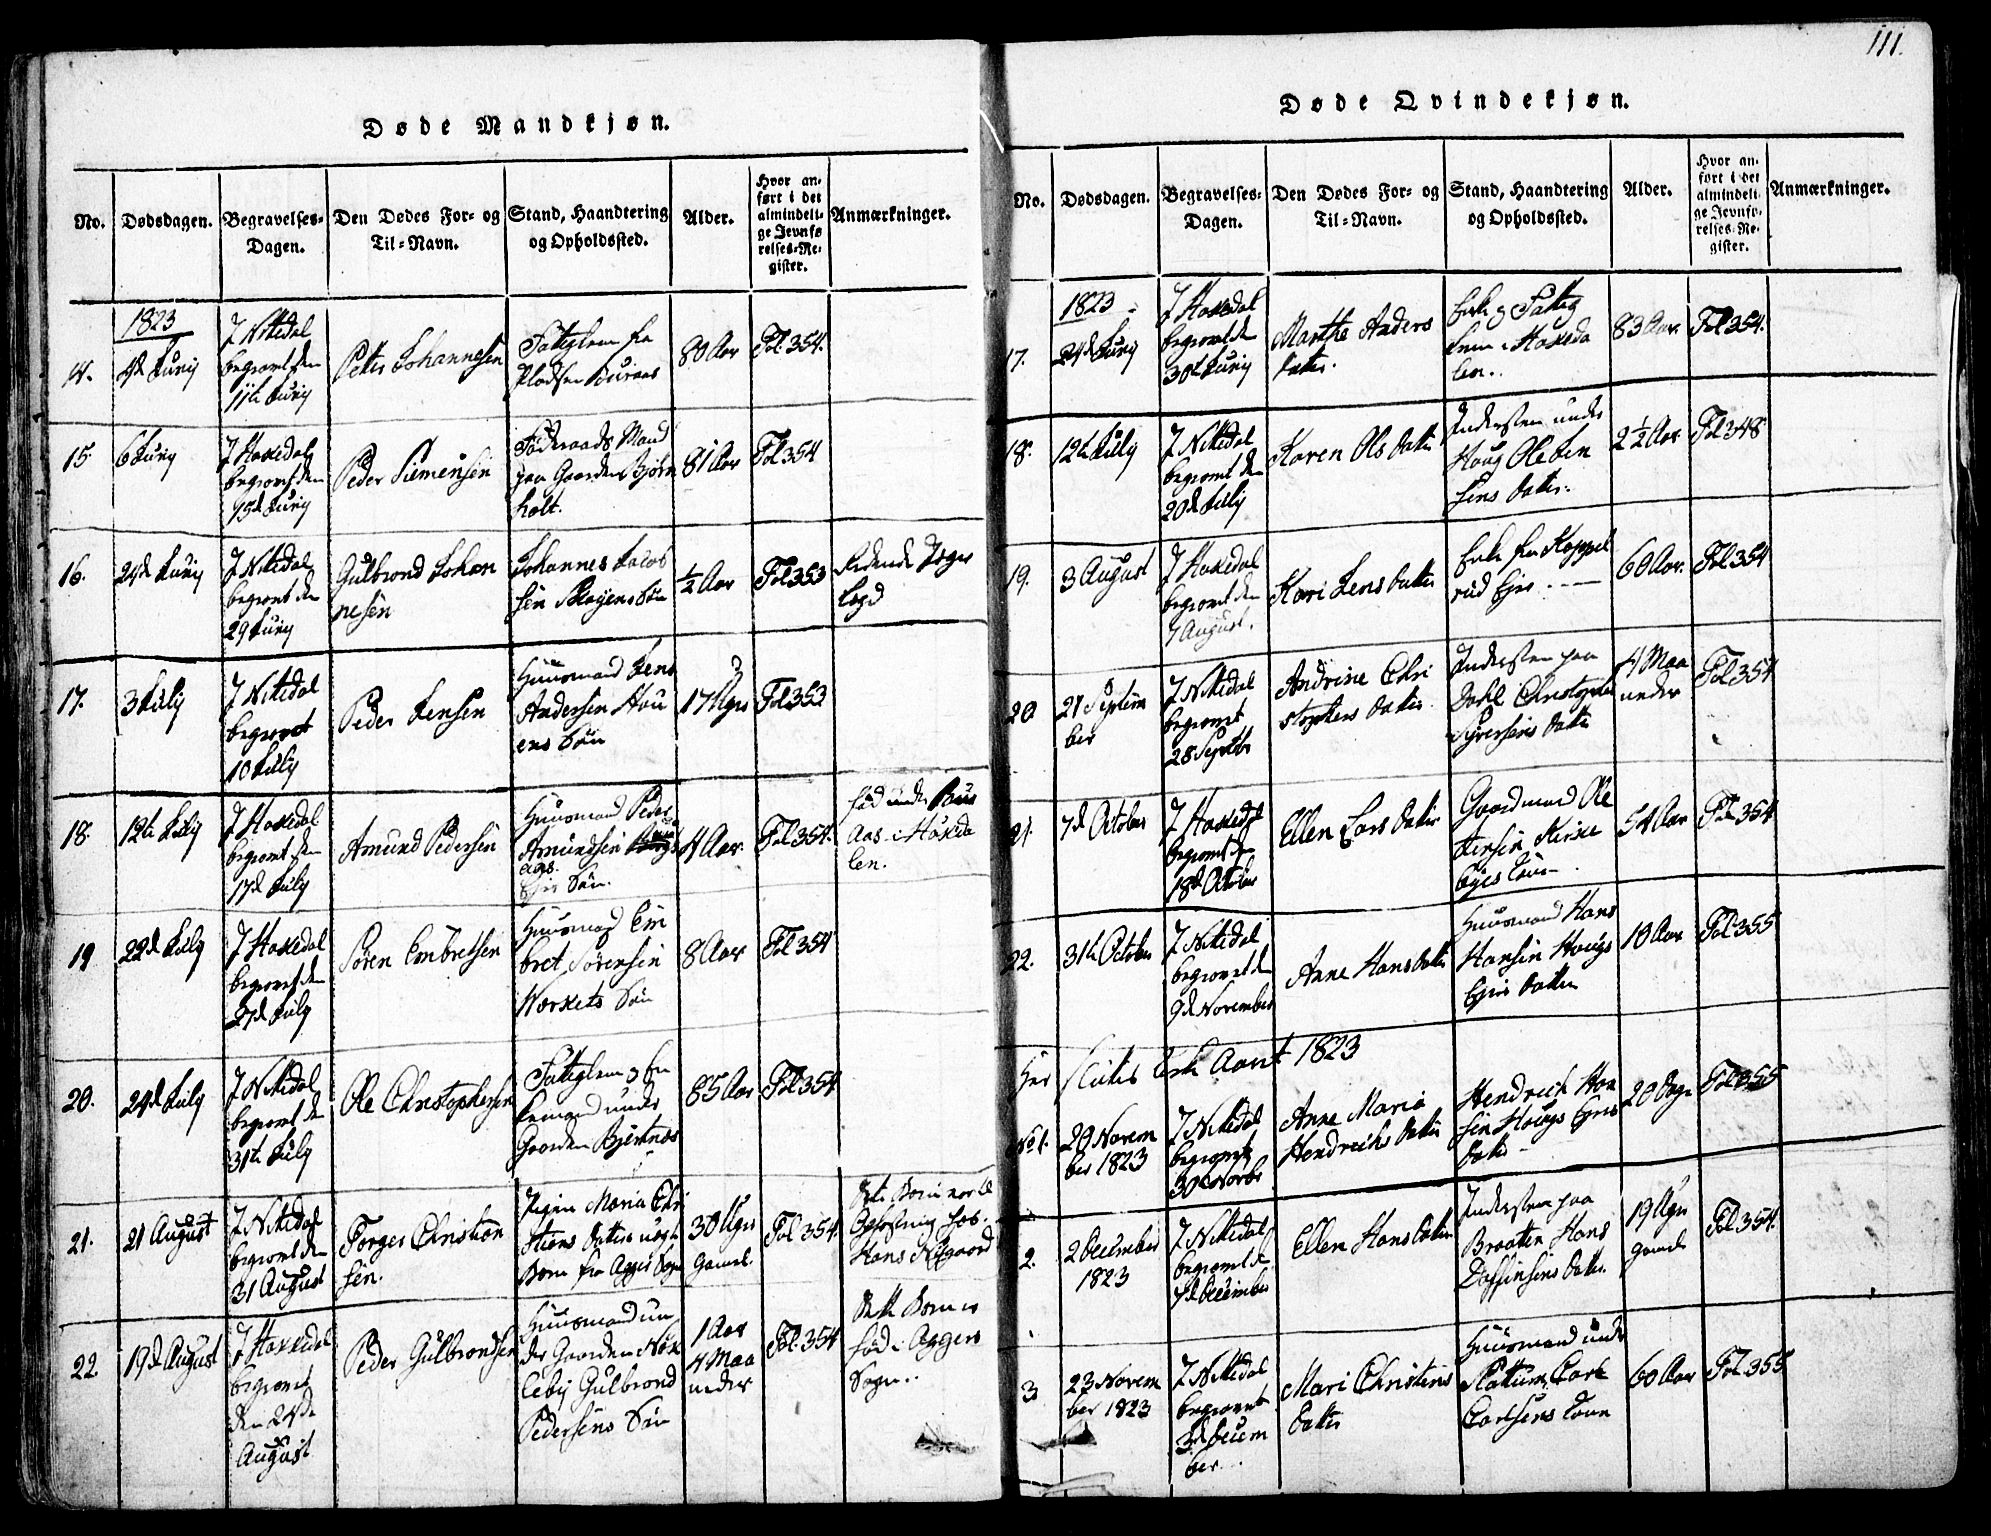 111.
Døde Mandkjøn.
No.
Dødsdagen.
Begravelses-
Dagen.
Den Dødes For- og
Til-Navn.
Stand, Haandtering
og Opholdssted.
Alder.
Hvor an-
ført i det
almindeli-
ge Jevnfø
relses-Re-
gister.
Anmærkninger.
1823
14.
Juny
I Nitedal
begravet den
11te Juny
Peter Johannesen
Fattiglem fra
Pladsen
80 Aar
Fol. 354.
15
6 Juny
I Hakedal
begravet den
15de Juny
Peder Siemensen
Føderaads Mand
paa Gaarden Bjørn
holt.
81 Aar
Fol 354
16.
24de Juny
I Nitedal
begravet den
29 Juny
Gulbrand Johan
nesen
Johannes Jacob
sen Søn
½ Aar
Fol 353
17.
3 July
I Nitedal
begravet
10 July
Peder Jensen
Huusmand Jens
Andersen Hau
ens Søn
17 Uger
Fol 353
18.
12te July
I Hakedal
begravet den
17de July
Amund Pedersen
Huusmand Peder
Amundsen
aas
Ejer Søn.
4 Aar.
Fol 354.
fød under
Aas i Hakeda
len.
19
22de July
I Hakedal
begravet den
27de July
Søren Embretsen
Huusmand Em
bret Sørensen
Værkets Søn
8 Aar
Fol 354
20.
24de July
I Nitedal
begravet den
31te July
Ole Christophersen
Fattiglem og En
kemand under
Gaarden Bjertnæs
85 Aar
Fol 354
21.
21 August
I Nitedal
begravet den
31 August
Torger Christian
sen.
Pigen Maria Chri
stians Datter uægte
Barn fra Agger Sogn
30 Uger
Gammel.
Fol 354.
Dette Barn var til
Opfostring hos
Hans
22.
19de August
I Hakedal
begravet
den 24de
August
Peder Gulbrandsen
Huusmand un
der Gaarden
Gulbrand
Pedersens Søn
1 Aar
4 Maa
neder
Fol. 354
Dette Barn er
fød i Aggers
Sogn.
Døde Qvindekjøn.
No.
Dødsdagen.
Begravelses-
Dagen.
Den Dødes For- og
Til-Navn.
Stand, Haandtering
og Opholdssted.
Alder.
Hvor an-
ført i det
almindeli-
ge Jevnfø-
relses-Re-
gister.
Anmærkninger.
1823
17.
24de Juny
I Hakedal
begravet den
30te Juny
Marthe Anders
Datter.
Enke og Fattig
lem i Hakeda
len.
83 Aar.
Fol 354.
18.
12te July
I Nitedal
begravet den
20de July
Karen Ols Datter
Indersten under
Haug Ole Jen
sens Datter.
2½ Aar
Fol 348
19.
3 August
I Hakedal
begravet den
7 August.
Kari Jens Datter
Enke fra Kappel
rud Ejer
60 Aar.
Fol 354
20
21 Septem
ber
I Nitedal
begravet
28 Septbr
Andrine Chri
stophers Datter
Indersten paa
Dahl Christopher
Syversens Datter
4 Maa
neder
Fol 354
21
7de October
I Hakedal
begravet den
18de October
Ellen Lars Datter
Gaardmand Ole
Jensen Kirke
byes Kone
54 Aar
Fol 354
22.
31te October
I Nitedal
begravet den
9de November
Anne Hans Datter
Huusmand Hans
Hansen Hougs
Ejer Datter
10 Aar
Fol 355
Her sluttes Aaret 1823
No 1.
20 Novem
ber 1823
I Nitedal
begravet
30 Novbr
Anne Maria
Hendrichs Datter
Hendrich Han
sen Hougs Ejers
Datter
20 Dage
Fol 355
2.
2 December
1823
I Nitedal
begravet d
7de December
Ellen Hans Datter
Indersten paa
Braaten Hans
Daffinsens Datter.
19 Uger
gamle
Fol 354.
3
23 Novem
ber 1823
I Nitedal
begravet
3de Decem
ber
Mari Christens
Datter
Huusmand under
Slattum Carl
Carlsens Kone
60 Aar
Fol 355